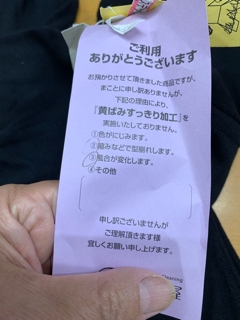 ご利用
ありがとうございます
お預かりさせて頂きました商品ですが、
まことに申し訳ありませんが、
下記の理由により、
「黄ばみすっきり加工」を
実施いたしておりません。
①色がにじみます。
②縮みなどで型崩れします。
③風合が変化します。
④その他
申し訳ございませんが
ご理解頂きます様
宜しくお願い申し上げます。